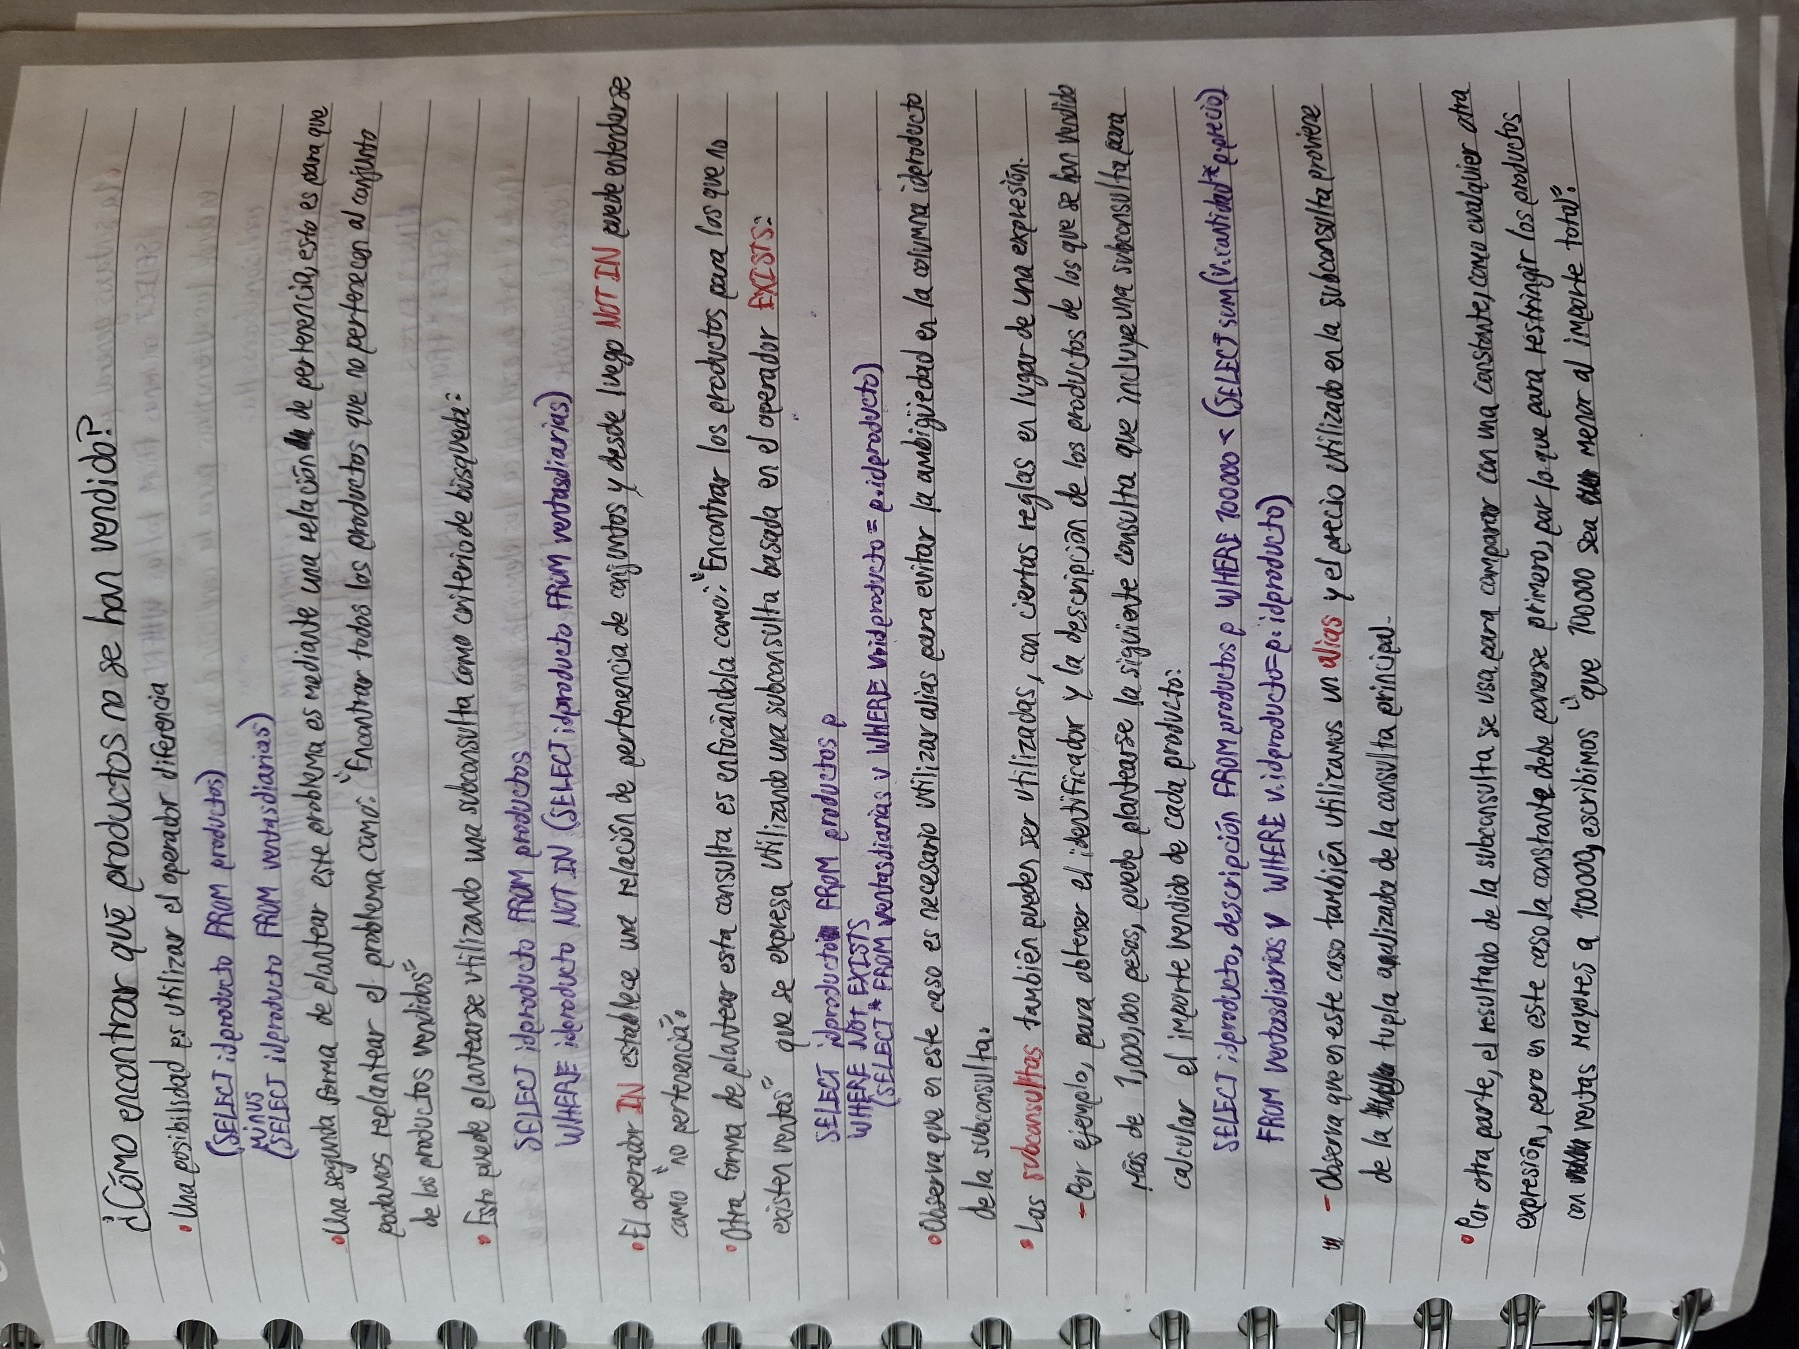 ¿Cómo encontrar qué productos no se han vendido?
• Una posibilidad es utilizar el operador diferencia
(SELECT idproducto FROM productos)
MINUS
(SELECT idproducto FROM ventasdiarias)
• Una segunda forma de plantear este problema es mediante una relación de pertenencia, esto es para que
podamos replantear el problema como: "Encontrar todos los productos que no pertenezcan al conjunto
de los productos vendidos"
• Esto puede plantearse utilizando una subconsulta como criterio de búsqueda:
SELECT idproducto FROM productos
WHERE idproducto NOT IN (SELECT idproducto FROM ventasdiarias)
• El operador IN establece una relación de pertenencia de conjuntos y desde luego NOT IN puede entenderse
como "no pertenencia".
• Otra forma de plantear esta consulta es enfocándola como: "Encontrar los productos para los que no
existen ventas" que se expresa utilizando una subconsulta basada en el operador EXISTS:
SELECT idproducto FROM productos p
WHERE NOT EXISTS
(SELECT * FROM ventasdiarias v WHERE v.idproducto = p.idproducto)
• Observa que en este caso es necesario utilizar alias para evitar la ambigüedad en la columna idproducto
de la subconsulta.
• Las subconsultas también pueden ser utilizadas, con ciertas reglas en lugar de una expresión.
- Por ejemplo, para obtener el identificador y la descripción de los productos de los que se han vendido
más de 1,000,000 pesos, puede plantearse la siguiente consulta que incluye una subconsulta para
calcular el importe vendido de cada producto:
SELECT idproducto, descripción FROM productos p WHERE 100000 < (SELECT sum(v.cantidad*p.precio)
FROM ventasdiarias v WHERE v.idproducto=p.idproducto)
- Observa que en este caso también utilizamos un alias y el precio utilizado en la subconsulta proviene
de la tupla analizada de la consulta principal.
• Por otra parte, el resultado de la subconsulta se usa para comparar con una constante, como cualquier otra
expresión, pero en este caso la constante debe ponerse primero, por lo que para restringir los productos
con ventas mayores a 10000, escribimos "que 10000 sea menor al importe total".